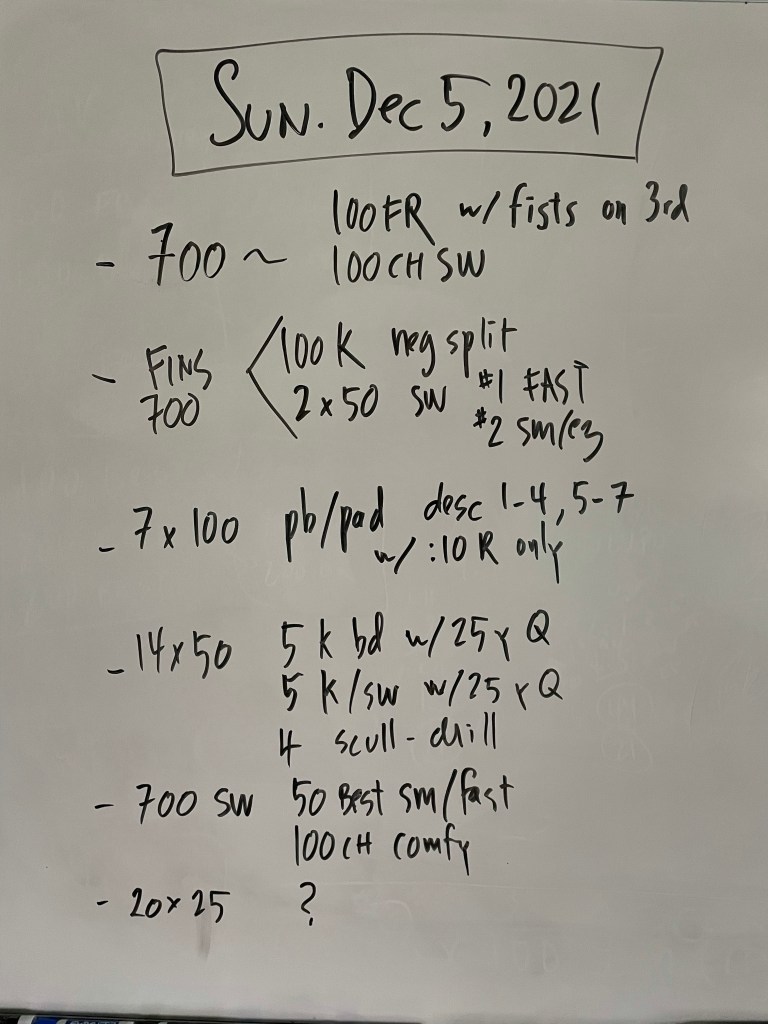 SUN. Dec 5, 2021
- 700 ~ 100 FR w/ fists on 3rd
100 CH SW
- FINS 100 K neg split
700 2 x 50 SW #1 FAST
#2 sm/ez
- 7 x 100 pb/pad desc 1-4, 5-7
w/ :10 R only
- 14 x 50 5 k bd w/ 25y Q
5 k/sw w/ 25 y Q
4 scull-drill
- 700 SW 50 Best sm/fast
100 CH comfy
- 20 x 25 ?